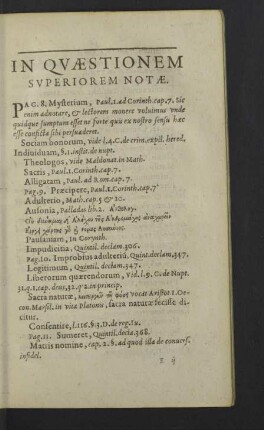 IN QVÆSTIONEM
SVPERIOREM NOTÆ.
PAG. 8. Mysterium, Paul. 1. ad Corinth. cap. 7. sic
enim adnotare, & lectorem monere volumus vnde
quidque sumptum esset ne forte quis ex nostro sensu hæc
esse conficta sibi persuaderet.
Sociam bonorum, vide l. 4. C. de crim. expil. hered.
Indiuiduam, §. 1. instit. de nupt.
Theologos, vide Maldonat. in Math.
Sacris, Paul. 1. Corinth. cap. 7.
Alligatam, Paul. ad Rom. cap. 7.
Pag. 9. Præcipere, Paul. 1. Corinth. cap. 7.
Adulterio, Math. cap. 5. & 10.
Ausonia, Palladas lib. 2.
Pausaniam, in Corynth.
Impudicitia, Quintil. declam. 306.
Pag. 10. Improbius adulteriũ, Quint. declam. 347.
Legitimum, Quintil. declam. 347.
Liberorum quærendorum, Vid. l. 9. C. de Nupt.
31. q. 1. cap. deus, 32. q. 2. in princip.
Sacra naturæ, vocat Aristot. 1. Oe-
con. Marsil. in vita Platonis, sacra naturæ fecisse di-
citur.
Consentire, l. 116. §. 3. D. de reg. iu.
Pag. 11. Sumeret, Quintil. decla. 368.
Matris nomine, cap. 2. §. ad quod illa de conuers.
infidel.
E ij